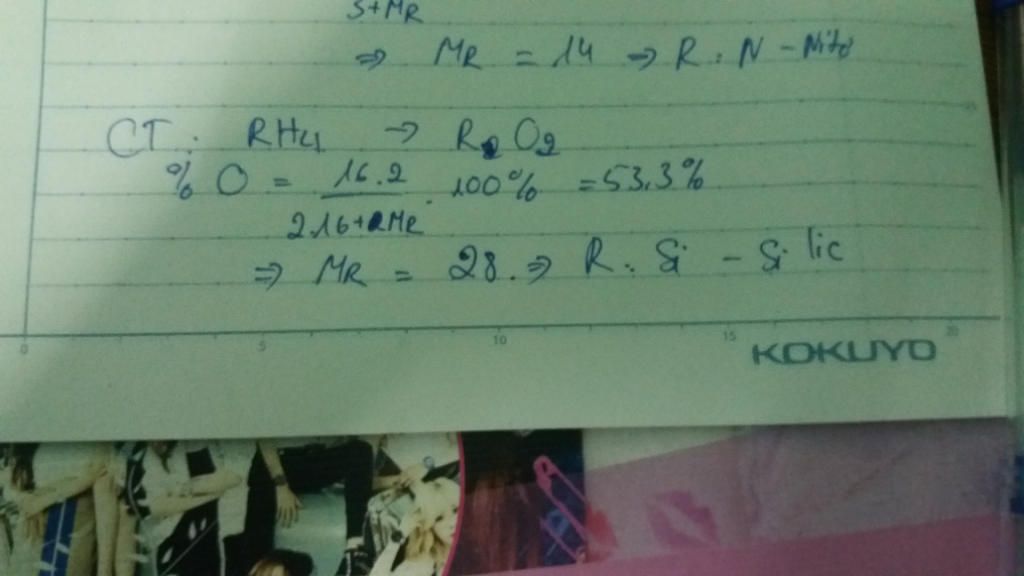 5+MR
⇒ MR = 14 ⇒ R : N - Nitơ
CT : RH4 → RO2
% O = 16.2 / 2.16+MR . 100% = 53,3%
⇒ MR = 28. ⇒ R : Si - Si lic
0 5 10 15 20
KOKUYO